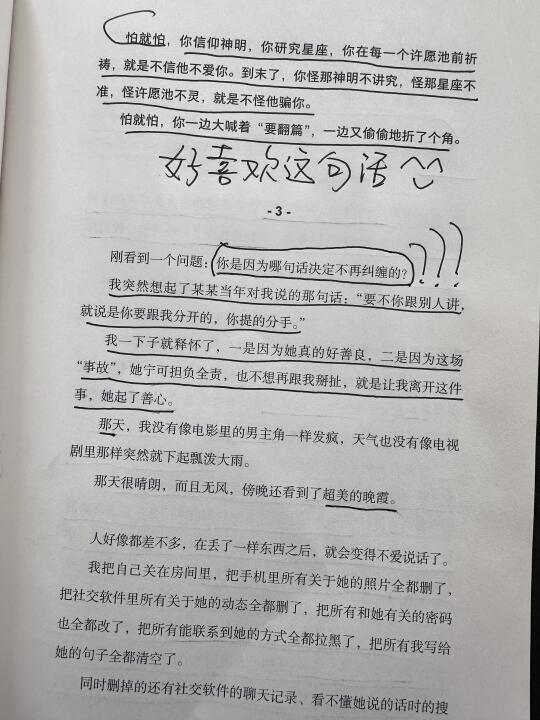 怕就怕，你信仰神明，你研究星座，你在每一个许愿池前祈
祷，就是不信他不爱你。到末了，你怪那神明不讲究，怪那星座不
准，怪许愿池不灵，就是不怪他骗你。
怕就怕，你一边大喊着“要翻篇”，一边又偷偷地折了个角。
好喜欢这句话
- 3 -
刚看到一个问题：你是因为哪句话决定不再纠缠的？???
我突然想起了某某当年对我说的那句话：“要不你跟别人讲，
就说是你要跟我分开的，你提的分手。”
我一下子就释怀了，一是因为她真的好善良，二是因为这场
“事故”，她宁可担负全责，也不想再跟我掰扯，就是让我离开这件
事，她起了善心。
那天，我没有像电影里的男主角一样发疯，天气也没有像电视
剧里那样突然就下起瓢泼大雨。
那天很晴朗，而且无风，傍晚还看到了超美的晚霞。
人好像都差不多，在丢了一样东西之后，就会变得不爱说话了。
我把自己关在房间里，把手机里所有关于她的照片全都删了，
把社交软件里所有关于她的动态全都删了，把所有和她有关的密码
也全都改了，把所有能联系到她的方式全都拉黑了，把所有我写给
她的句子全都清空了。
同时删掉的还有社交软件的聊天记录、看不懂她说的话时的搜